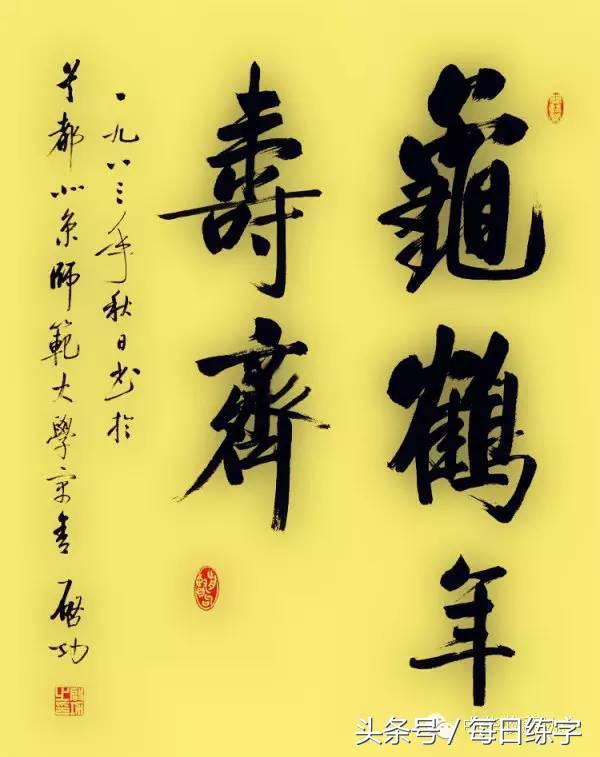 龜鶴年
壽齊
一九八三年秋日书於
首都北京師範大學宿舍 啓功
头条号 / 每日练字